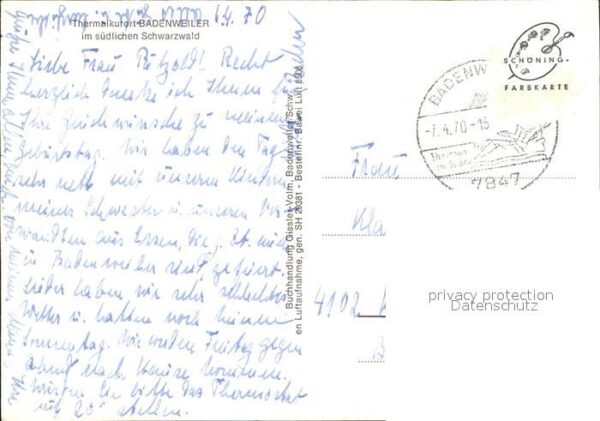 6.4.70
Thermalkurort BADENWEILER
im südlichen Schwarzwald
Liebe Frau Pützoldt! Recht
herzlich danke ich Ihnen für
Ihre Glückwünsche zu meinem
Geburtstag. Wir haben den Tag
sehr nett mit unseren Kindern
meiner Schwester u. unseren Ver-
wandten aus Essen, die z. Zt. auch
in Badenweiler sind gefeiert.
Leider haben wir sehr schlechtes
Wetter u. hatten noch keinen
Sonnentag. Wir werden Freitag gegen
Abend nach Hause kommen.
Würden Sie bitte das Thermostat
auf 20° stellen.
Buchhandlung Gisslet-Volm, Badenweiler/Schw.
en Luftaufnahme, gen. SH 29381 - Bestellnr. Bawei Luft
SCHÖNING-
FARBKARTE
BADENW
-7.4.70-15
7847
Frau
Kla
4102
B
privacy protection
Datenschutz